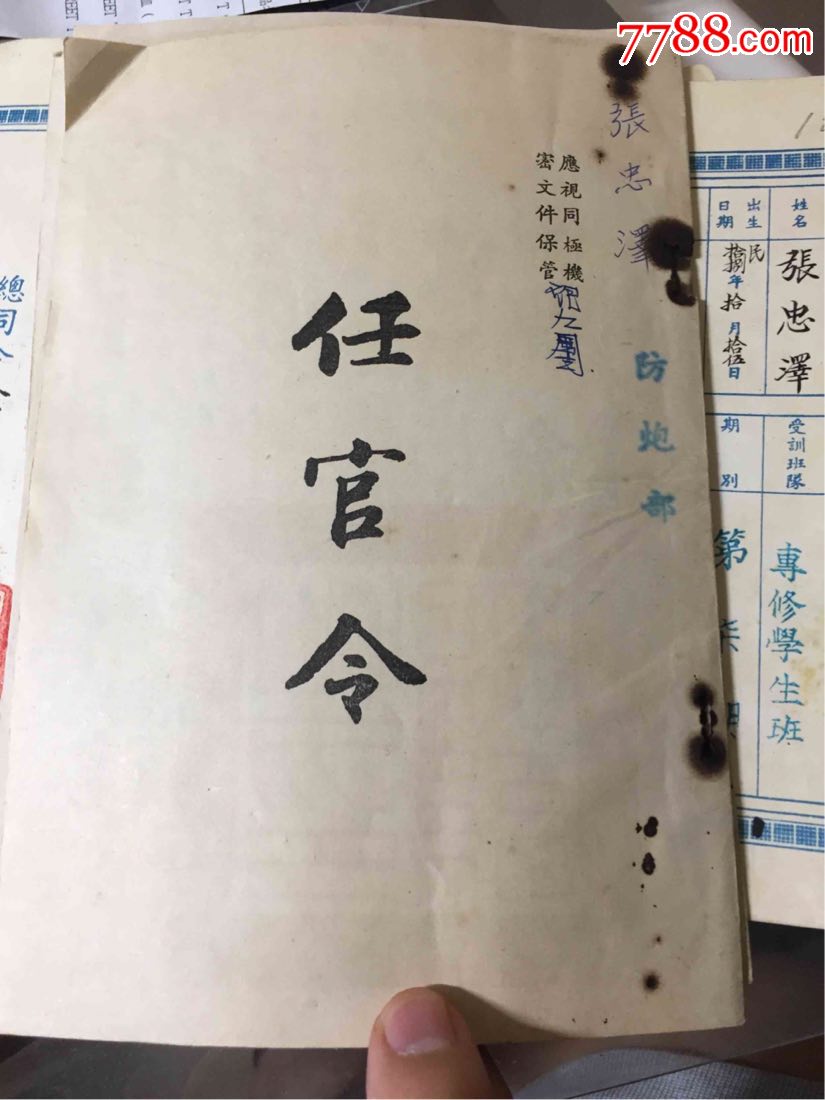 7788.com
張忠澤
應視同極機
密文件保管
防炮部
任官令
姓名
張忠澤
出生
日期
民
拾捌年拾月拾伍日
受訓班隊
專修學生班
期別
第柒期
總司令